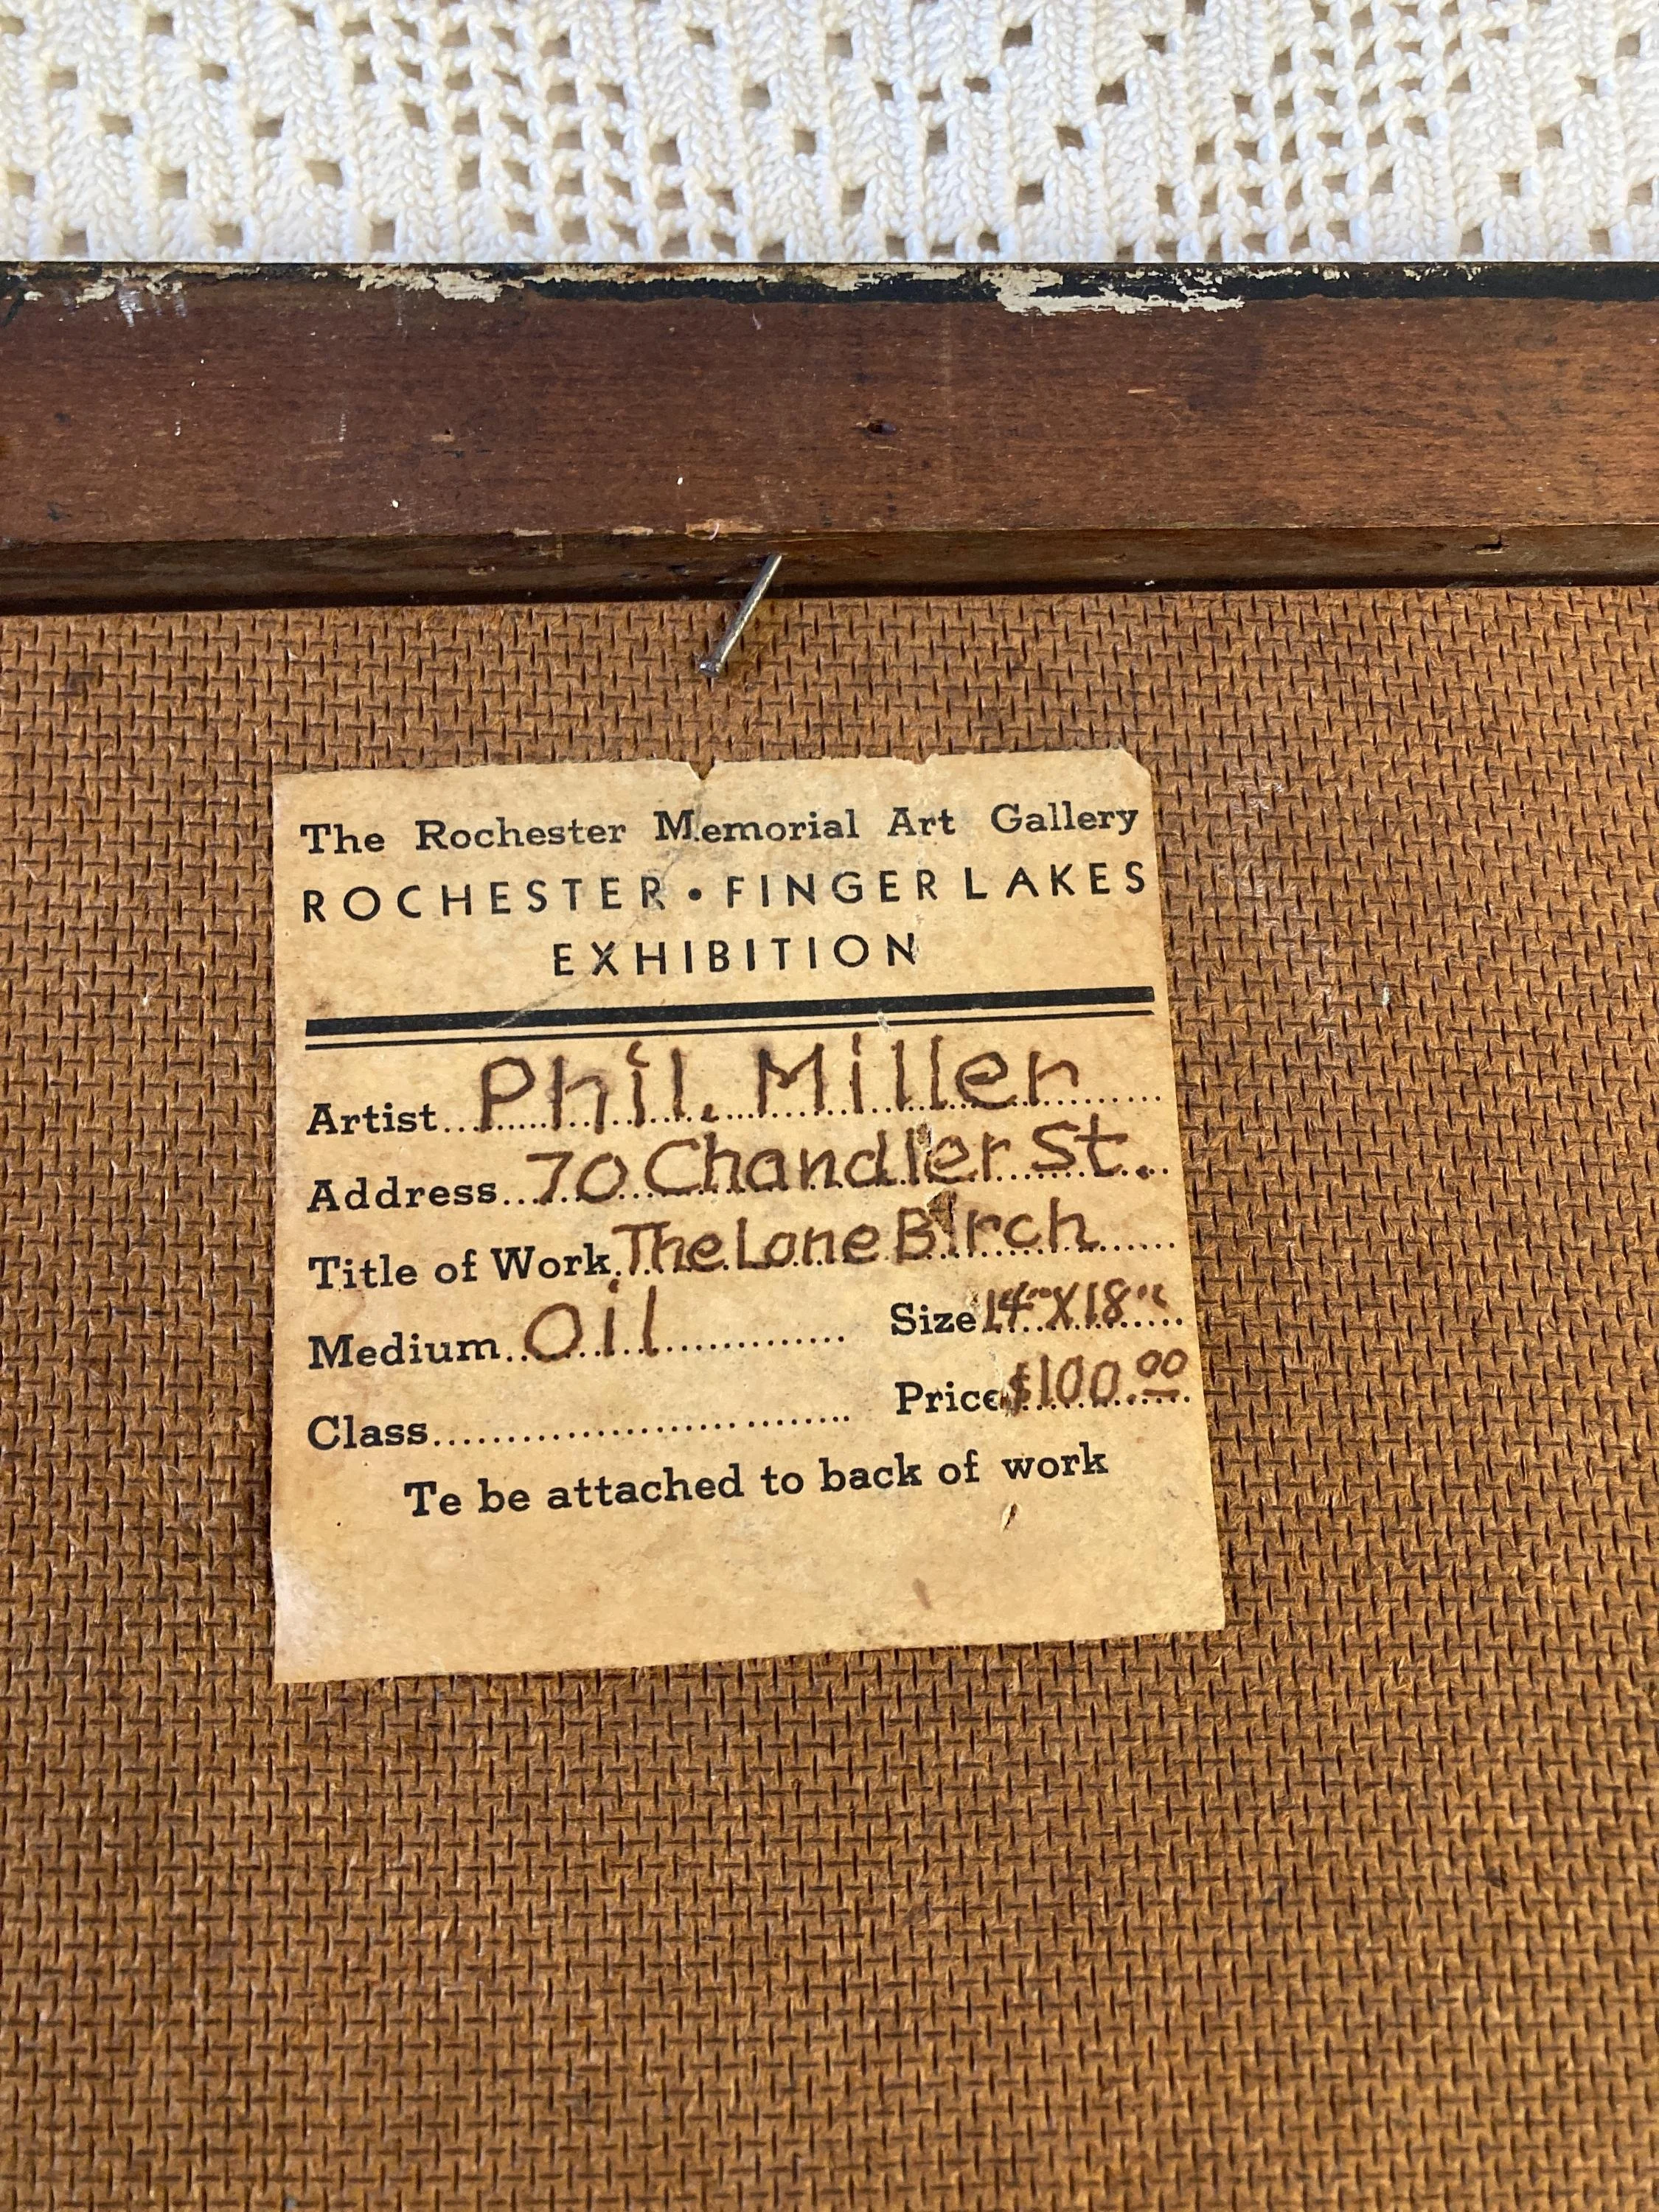 The Rochester Memorial Art Gallery
ROCHESTER • FINGER LAKES
EXHIBITION
Artist...Phil. Miller
Address...70 Chandler St.
Title of Work.The Lone Birch
Medium...Oil Size 14"X18"
Class... Price $100.00
Te be attached to back of work